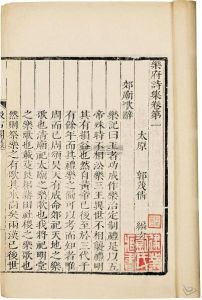 樂府詩集卷第一
太原 郭茂倩 編
郊廟歌辭
樂記曰王者功成作樂治定制禮是以五
帝殊時不相沿樂三王異世不相襲禮明
其有損益也然自黃帝已後至於三代千
有餘年而其禮樂之備可以考而知者唯
周而已周頌昊天有成命郊祀天地之樂
歌也清廟祀太廟之樂歌也我將祀明堂
之樂歌也載芟良耜藉田社稷之樂歌也
然則祭樂之有歌其來尚矣兩漢已後世